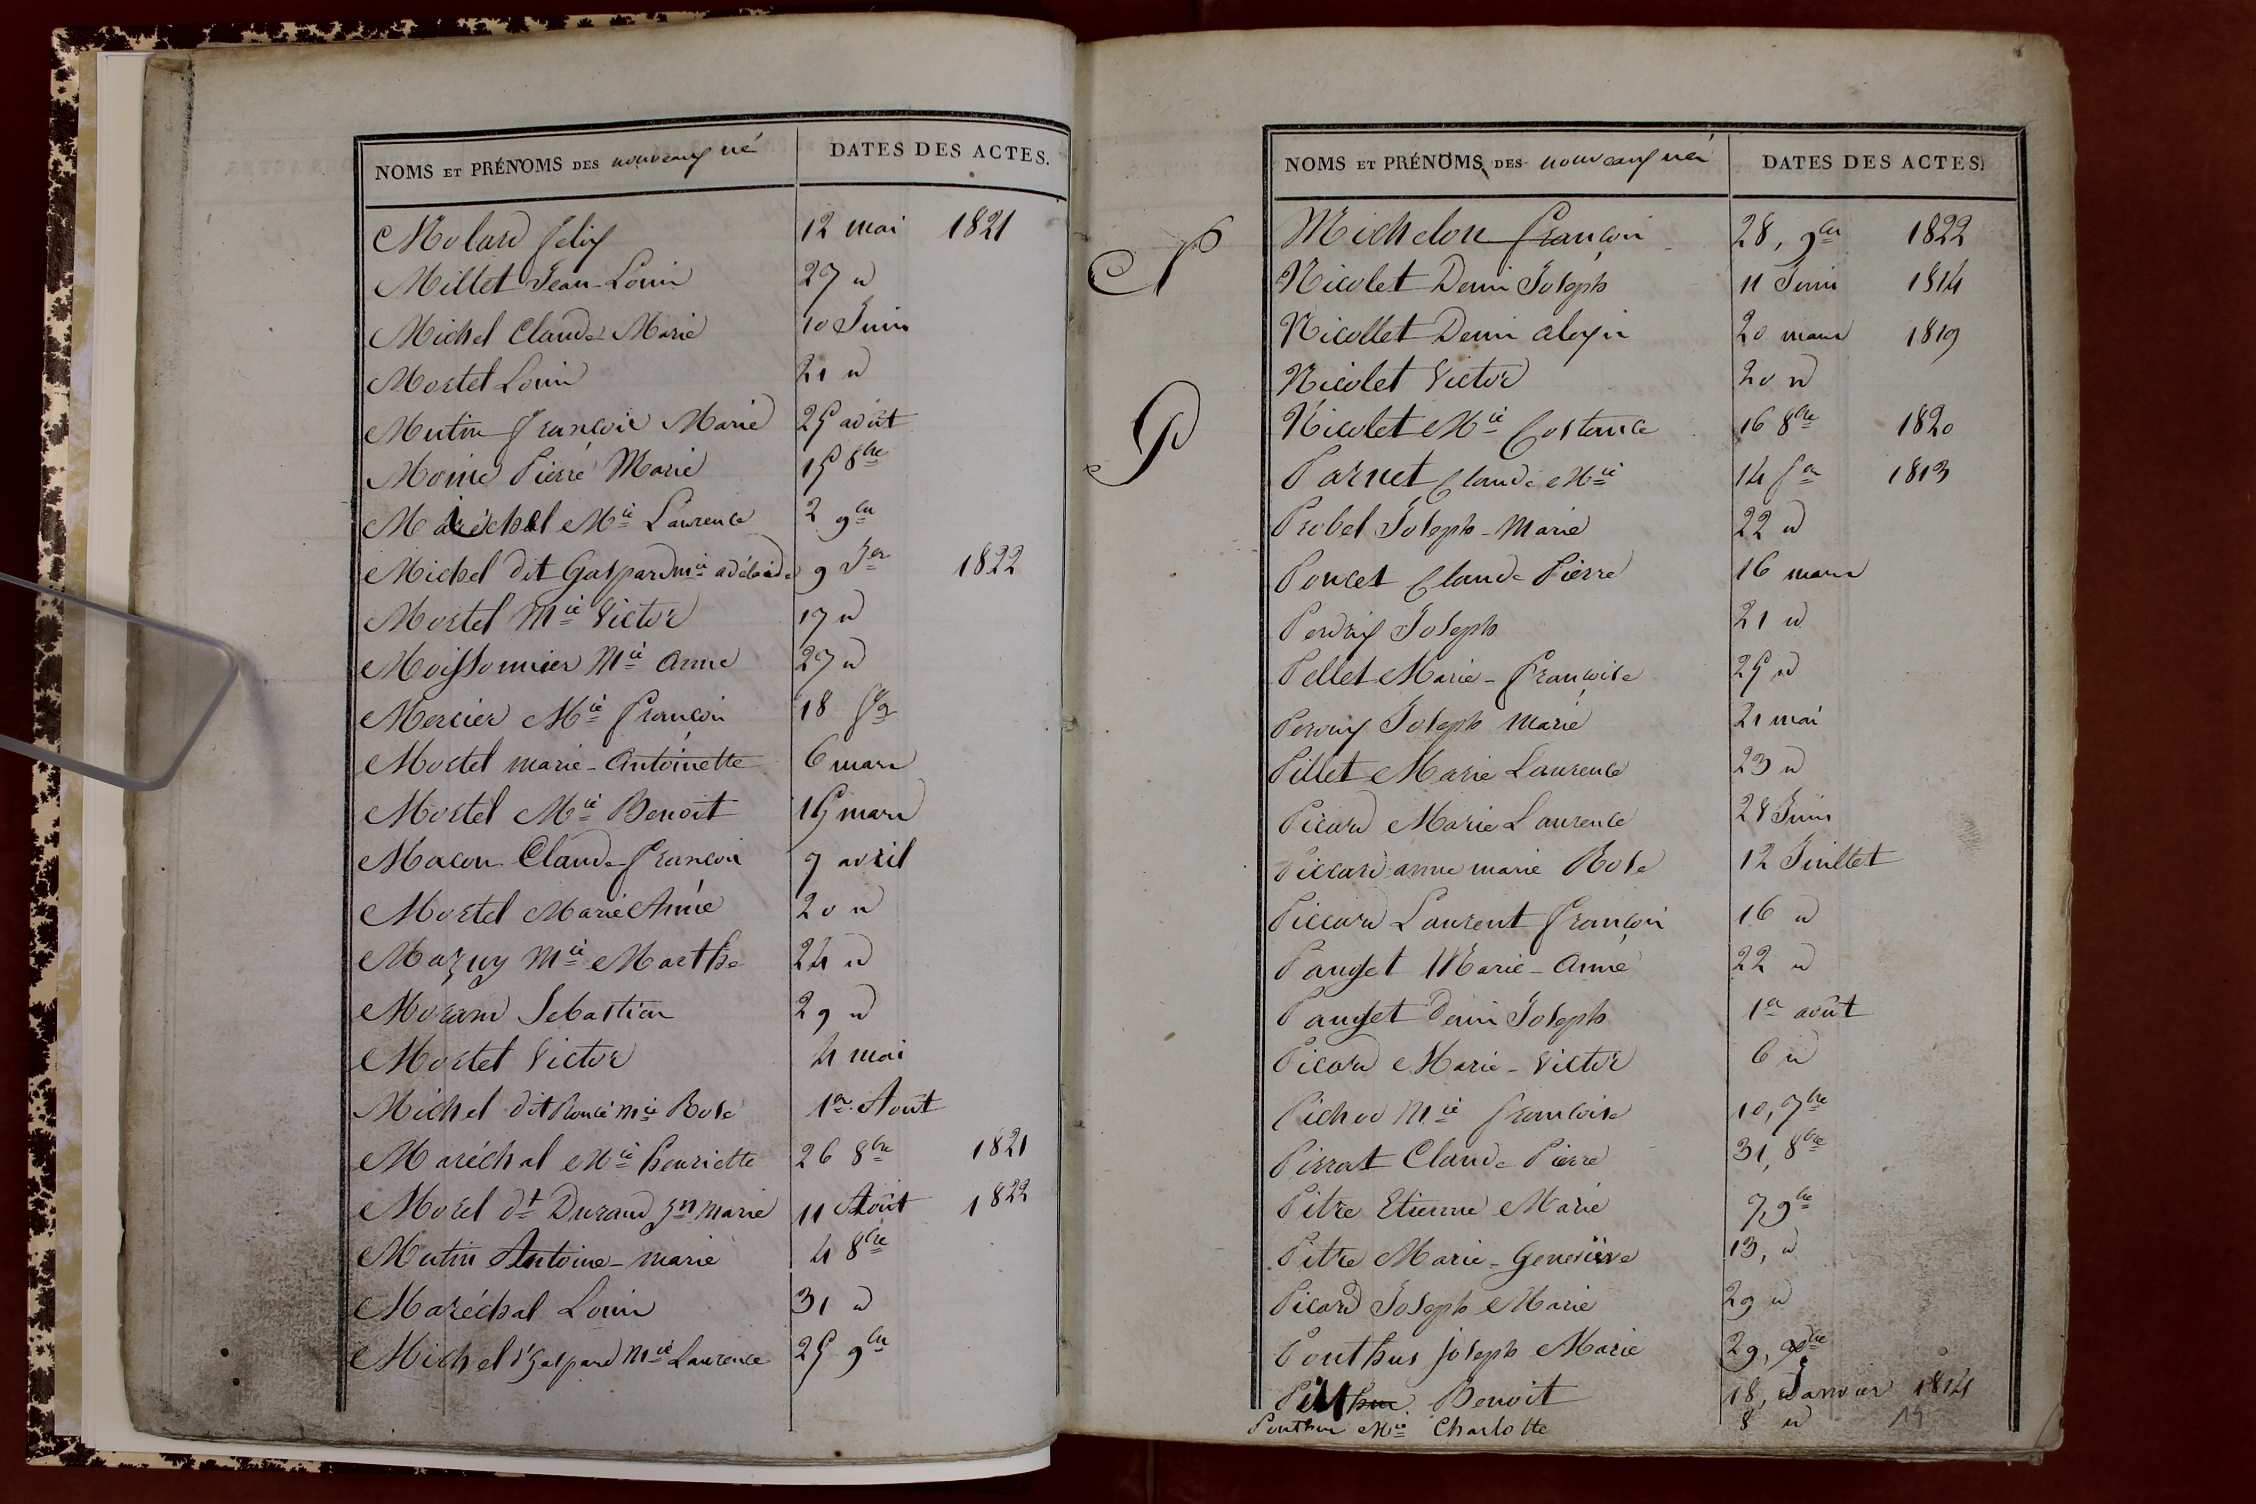 NOMS ET PRÉNOMS DES nouveaux né DATES DES ACTES.
Molard felix 12 mai 1821
Millet Jean-Louis 27 id
Michel Claude Marie 10 Juin
Mortel Louis 21 id
Mutin françois Marie 25 août
Moine Pierre Marie 15 8bre
Maréchal Mie Laurence 2 9bre
Michel dit Gaspard mie adélaide 9 Jer 1822
Mortel Mie Victor 17 id
Moissonnier Mie anne 27 id
Mercier Mie françois 18 fer
Mortel marie-Antoinette 6 mars
Mortel Mie Benoit 15 mars
Macon Claude françois 9 avril
Mortel Marie Anne 20 id
Mazuy Mie Marthe 24 id
Morand Sebastien 29 id
Mortel Victor 4 mai
Michel dit Mie Rose 1er Août
Maréchal Mie henriette 26 8bre 1821
Morel dt Durand Jn marie 11 Août 1822
Mutin Antoine-marie 4 8bre
Maréchal Louis 31 id
Michel d' Gaspard Mie Laurence 25 9bre
NOMS ET PRÉNOMS DES nouveaux nés DATES DES ACTES
Michelon françois 28, 9bre 1822
N
Nicolet Denis Joseph 11 Juin 1814
Nicollet Denis aloyis 20 mars 1819
Nicolet Victor 20 id
Nicolet Mie Costance 16 8bre 1820
P
Parnet Claude Mie 14 fer 1813
Probel Joseph-Marie 22 id
Poncet Claude Pierre 16 mars
Perdrix Joseph 21 id
Pellet Marie-françoise 25 id
Joseph Marie 21 mai
Pillet Marie Laurence 23 id
Picard Marie Laurence 28 Juin
Piccard anne marie Rose 12 Juillet
Piccard Laurent françois 16 id
Pauget Marie-Anne 22 id
Pauget Denis Joseph 1er août
Picard Marie-Victor 6 id
Pichod Mie françoise 10, 7bre
Pirrat Claude Pierre 31, 8bre
Pitre Etienne Marie 7, 9bre
Pitre Marie-Geneviève 13, id
Picard Joseph Marie 29 id
Ponthus joseph Marie 29,
Benoit 18, Janvier 1814
Ponthus Mie Charlotte 8 id 19